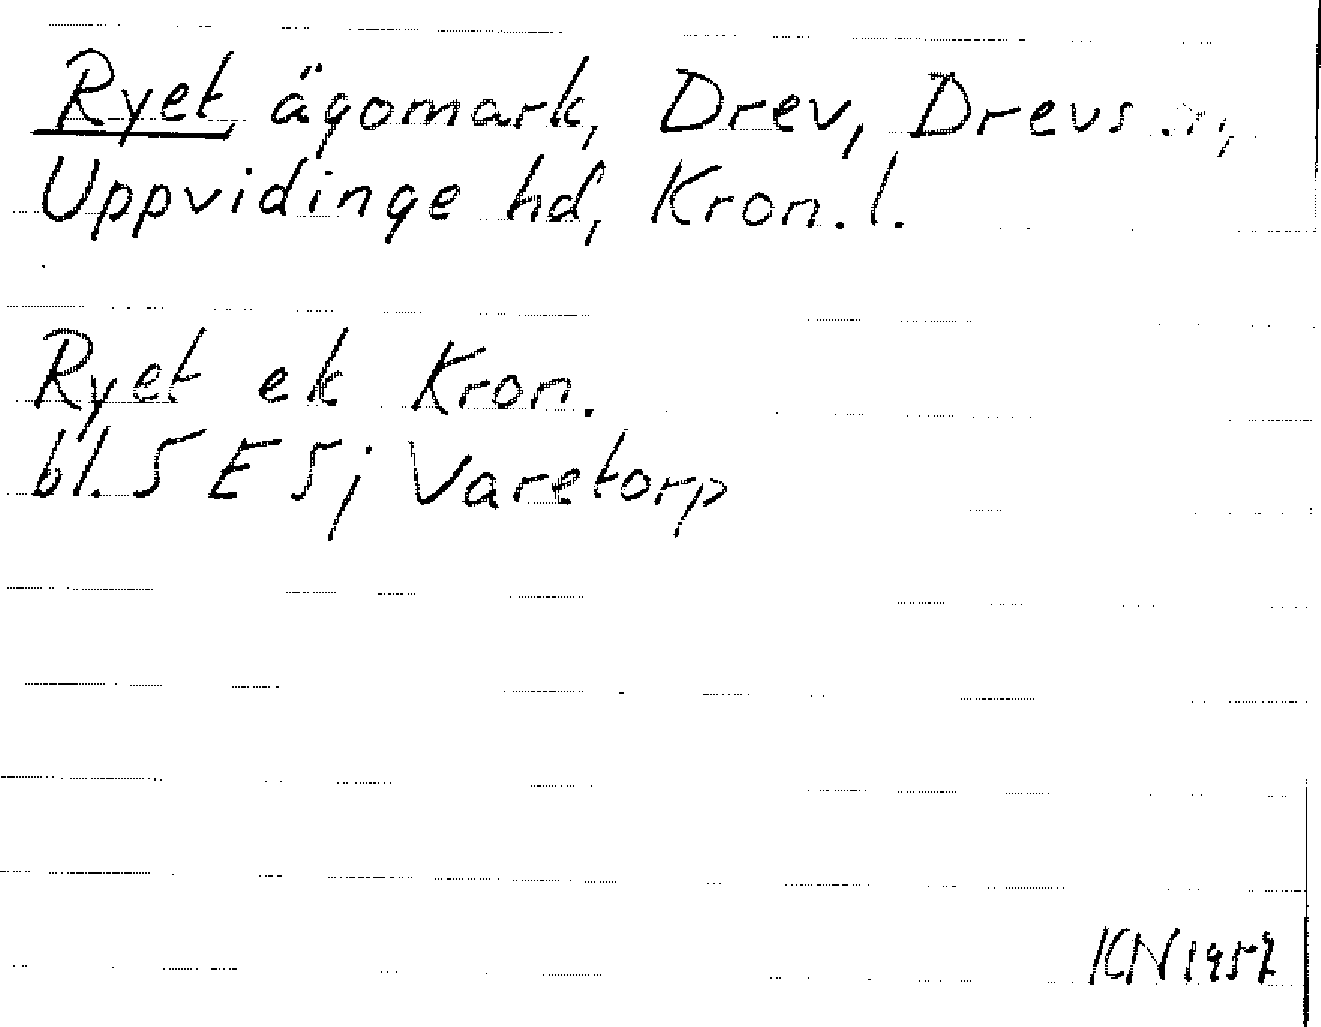 Ryet, ägomark, Drev, Drevs sn,
Uppvidinge hd, Kron. l.
Ryet ek Kron.
bl. 5 E 5j Varetorp
KN 1957